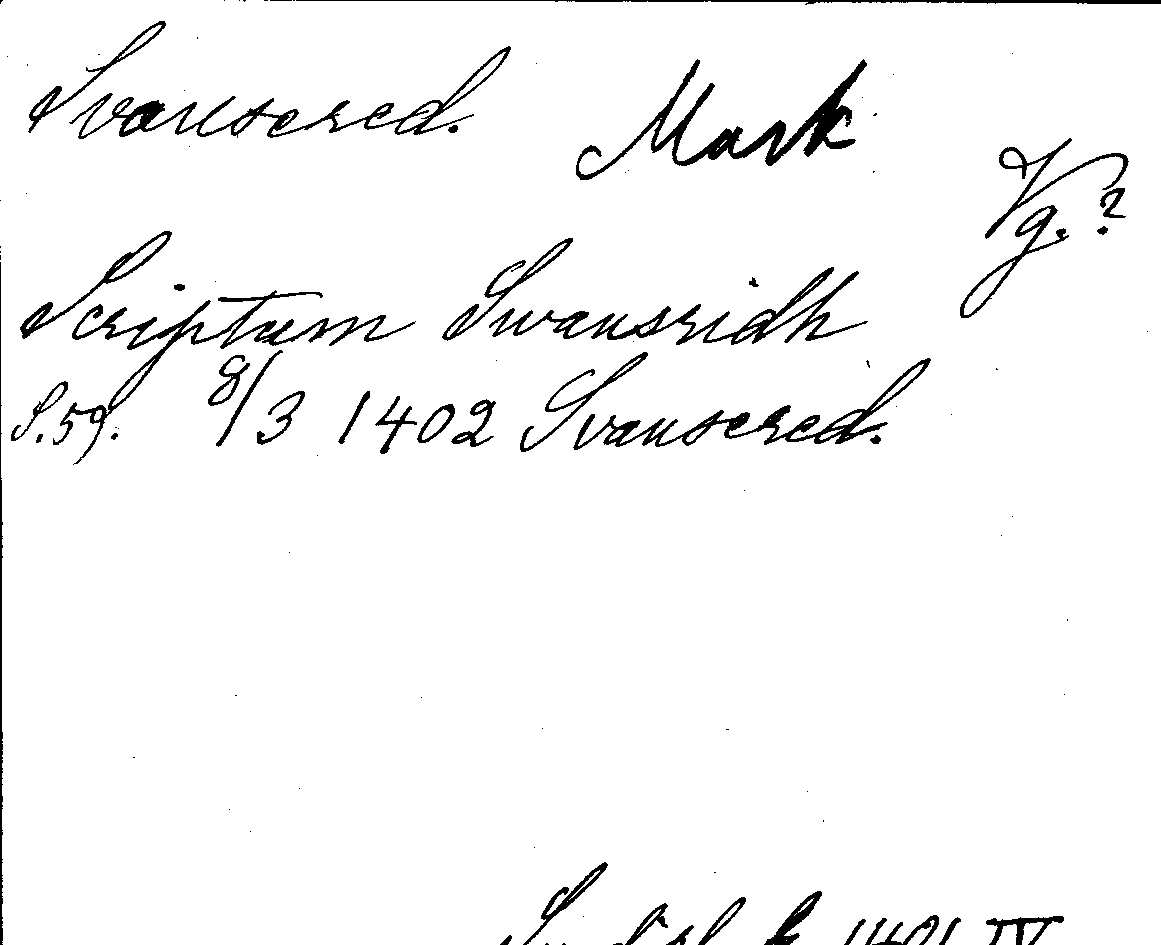 Svansered. Mark
Vg.?
Scriptum Swansridh
S.59. 8/3 1402 Svansered.
1401 IV